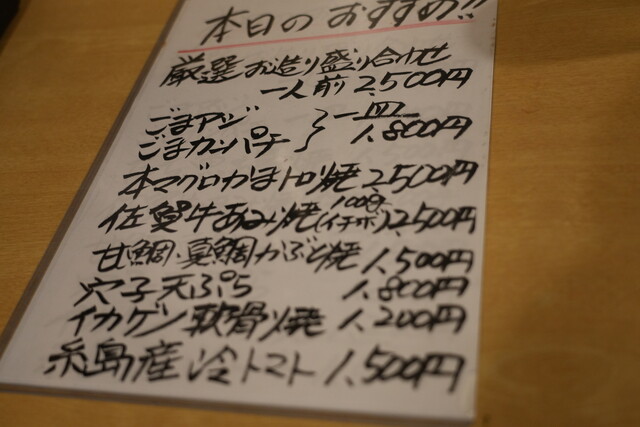 本日のおすすめ!!
厳選お造り盛り合わせ
一人前 2,500円
ごまアジ
ごまカンパチ
一皿
1,800円
本マグロかまトロ焼 2,500円
佐賀牛あみ焼(イチボ)100g 2,500円
甘鯛・真鯛かぶと焼 1,500円
穴子天ぷら 1,800円
イカゲソ軟骨焼 1,200円
糸島産 冷トマト 1,500円